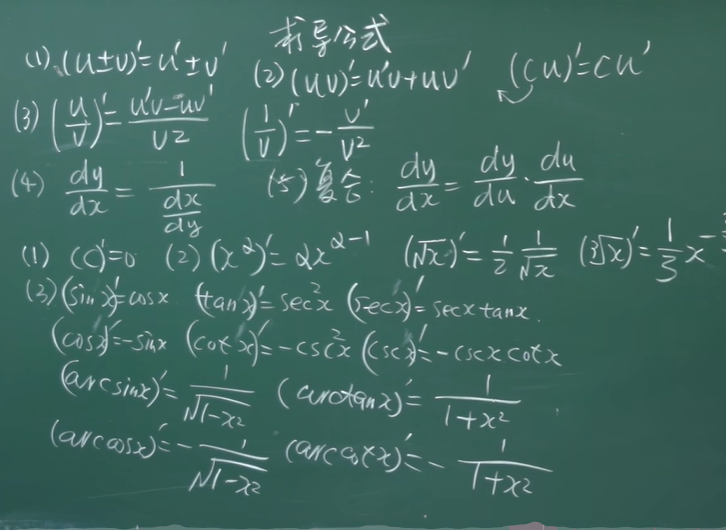 求导公式
(1) (u±v)'=u'±v' (2) (uv)'=u'v+uv' (cu)'=cu'
(3) (u/v)'=(u'v-uv')/v² (1/v)'=-v'/v²
(4) dy/dx=1/(dx/dy) (5) 复合: dy/dx=dy/du·du/dx
(1) (c)'=0 (2) (x^α)'=αx^(α-1) (√x)'=1/2 1/√x (³√x)'=1/3 x^-
(3) (sinx)'=cosx (tanx)'=sec²x (secx)'=secxtanx.
(cosx)'=-sinx (cotx)'=-csc²x (cscx)'=-cscxcotx
(arcsinx)'=1/√(1-x²) (arctanx)'=1/(1+x²)
(arccosx)'=-1/√(1-x²) (arccotx)'=-1/(1+x²)